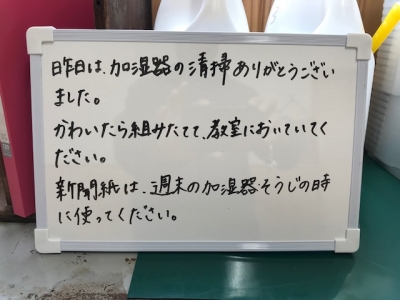 昨日は、加湿器の清掃ありがとうござい
ました。
かわいたら組みたてて、教室においていてく
ださい。
新聞紙は、週末の加湿器そうじの時
に使ってください。